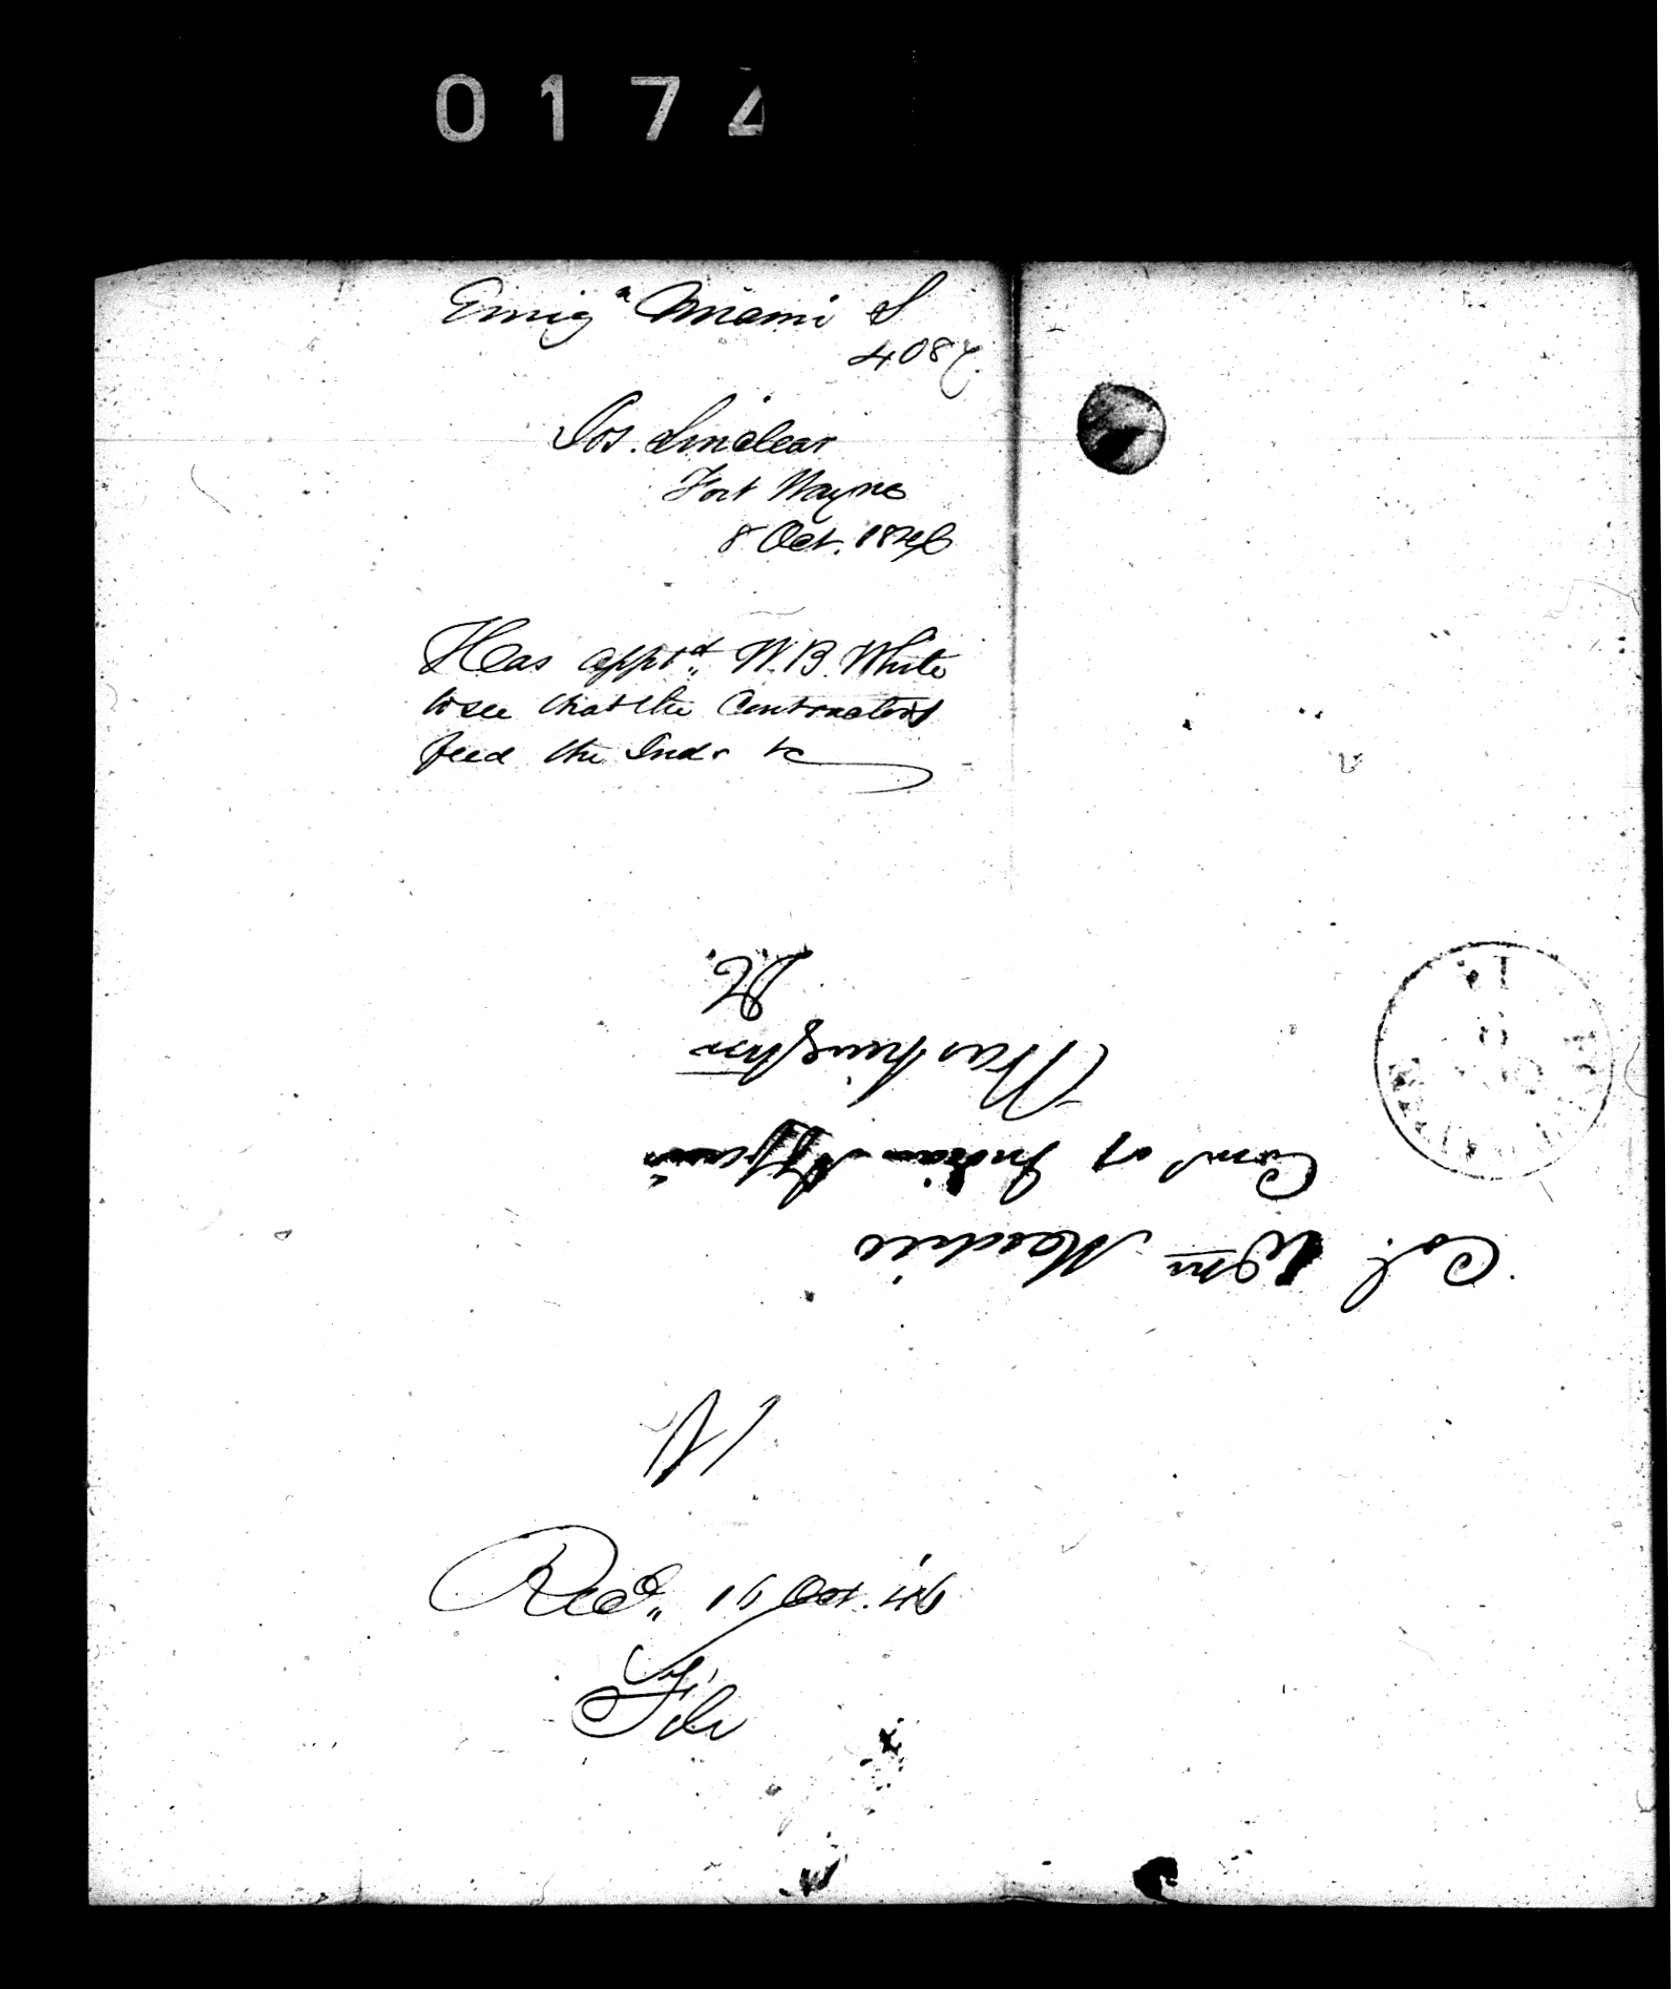 0174
Emig.n Miami S
408
Jos. Sinclear
Fort Wayne
8 Oct. 1846
Has appt.d W.B. White
to see that the Contractors
feed the Inds &c
Col. Wm Medill
Com.r of Indian Affairs
Washington
D.C.
Recd. 16 Oct. 46
File